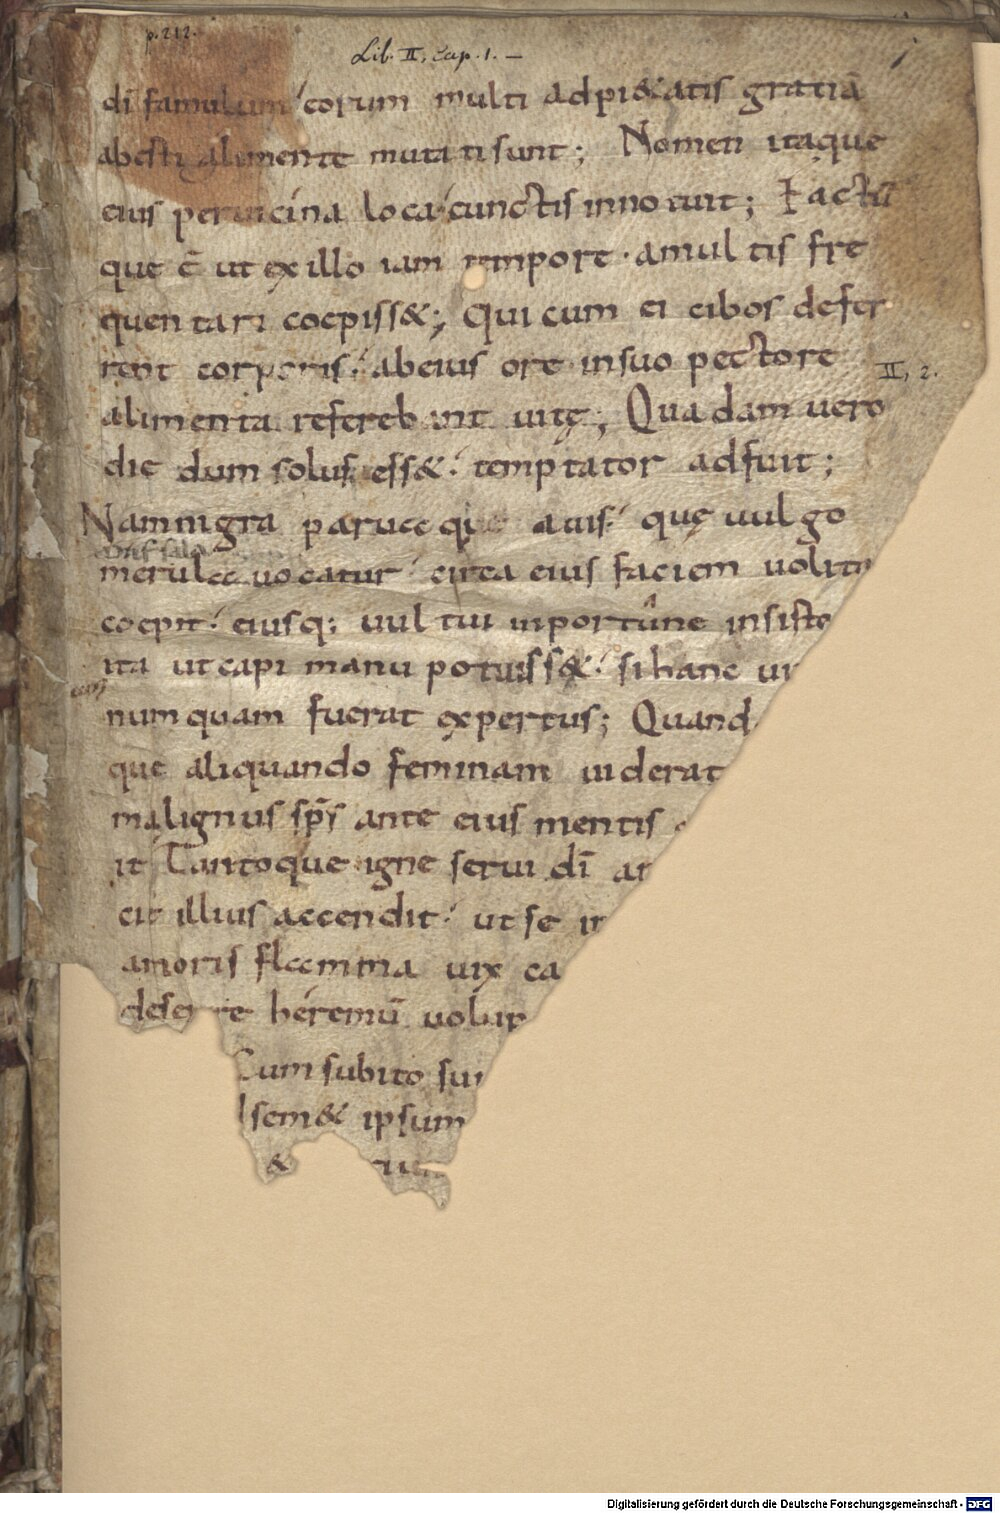 p. 212.
Lib. II, Cap. 1. —
dī famulum corum multi ad pi&atis gratiā
abesti alimente mutati sunt; Nomen itaque
eius peruicina loca cunctis innotuit; Factū
que ē ut ex illo iam tempore · amultis fre
quentari coepiss&; Qui cum ei cibos defer
rent corporis abeius ore insuo pectore
II, 2.
alimenta refereb ant uitę; Quadam uero
die dum solus ess& temptator adfuit;
Nam nigra paruaque auis quę uulgo
merula uocatur circa eius faciem uolita
coepit eiusq; uultui inportune insiste
ita ut capi manu potuiss& si hanc ui
numquam fuerat expertus; Quand
que aliquando feminam uiderat
malignus sp̄s ante eius mentis
it Tantoque igne serui dī an
cit illius accendit ut se in
amoris flamma uix ca
dese re heremū uolup
Cum subito sui
sem& ipsum
&
Digitalisierung gefördert durch die Deutsche Forschungsgemeinschaft - DFG